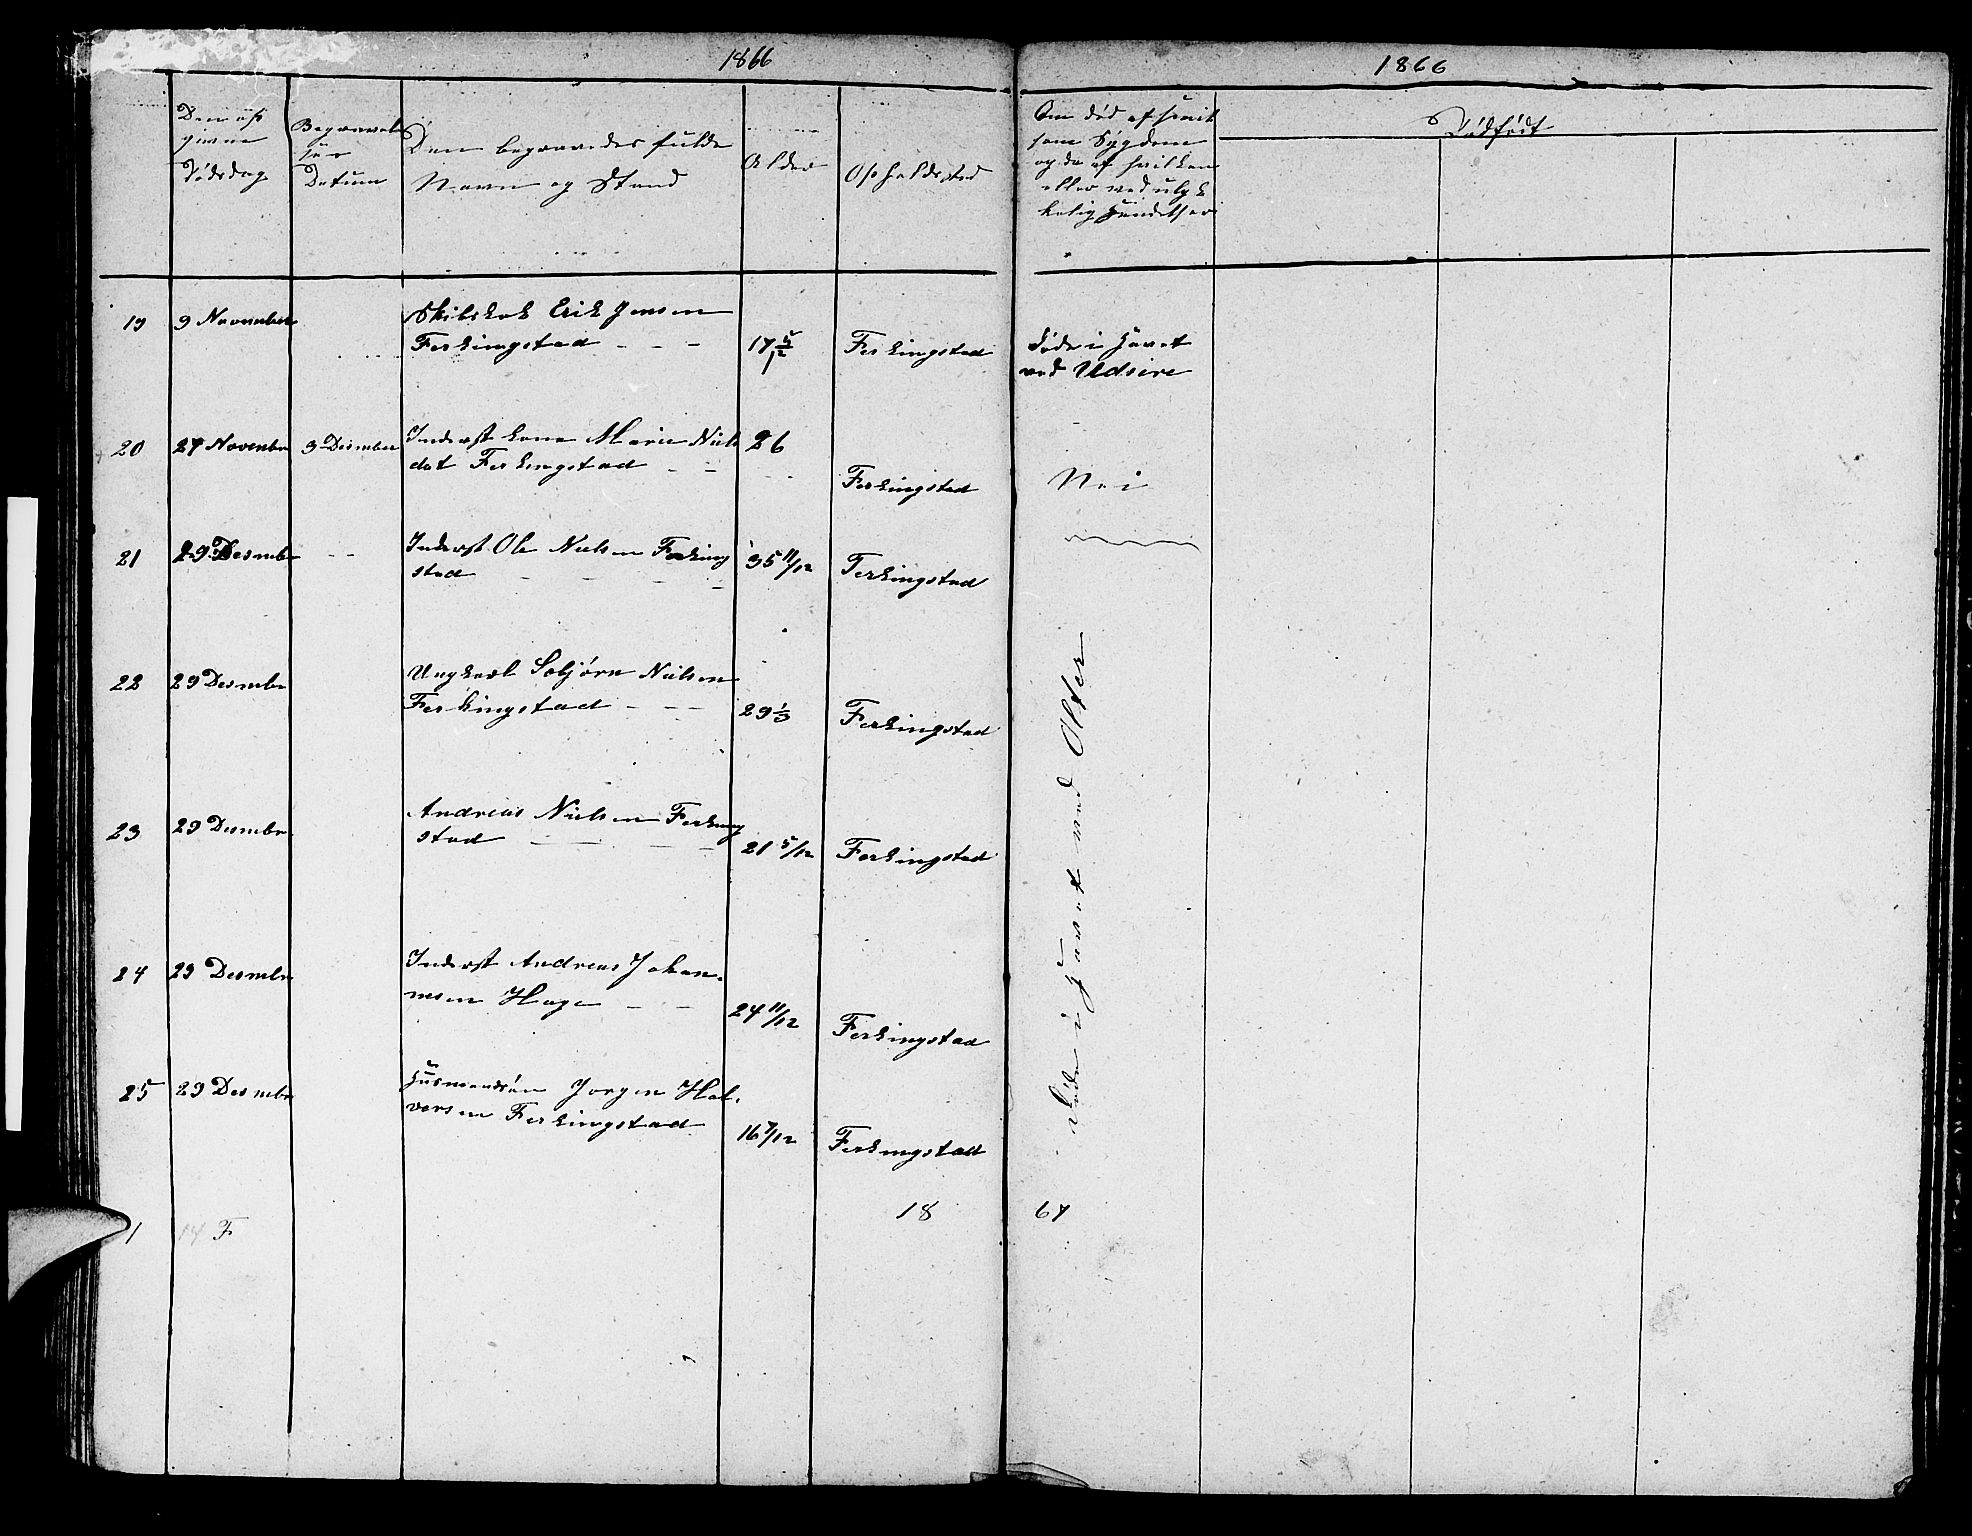 1866
Den op
givne
Dødsdag
Begravel
ses
Datum
Den begravedes fulde
Navn og Stand
Alder
Opholdsted
19 9 November Skibskok Erik Jensen
Ferkingstad - - - 17 5/12 Ferkingstad
20 27 Novembr 3 Desember Inderst kone Marie Niels 26
dat Ferkingstad - - Ferkingstad
21 29 Desmbr - - Inderst Ole Nielsen Ferking 35 11/12 Ferkingstad
stad - - - - -
22 29 Desmbr Ungkarl Nielsen
Ferkingstad - - - 29 1/3 Ferkingstad
23 29 Desmbr Andreas Nielsen Ferking
stad - - - - 21 5/12 Ferkingstad
24 29 Desmbr Inderst Andreas Johan-
nesen Hage - - 24 11/12 Ferkingstad
25 29 Desmbr Husmandsøn Jørgen Hal-
vorsen Ferkingstad 16 7/12 Ferkingstad
1 14 F 18
1866
Om død af smit
som Sygdom
og da af hvilken
eller ved ulyk
kelig Hændelser
Dødfødt
døde i Havet
ved Udsire
Nei
døde i Havet med Olter
67